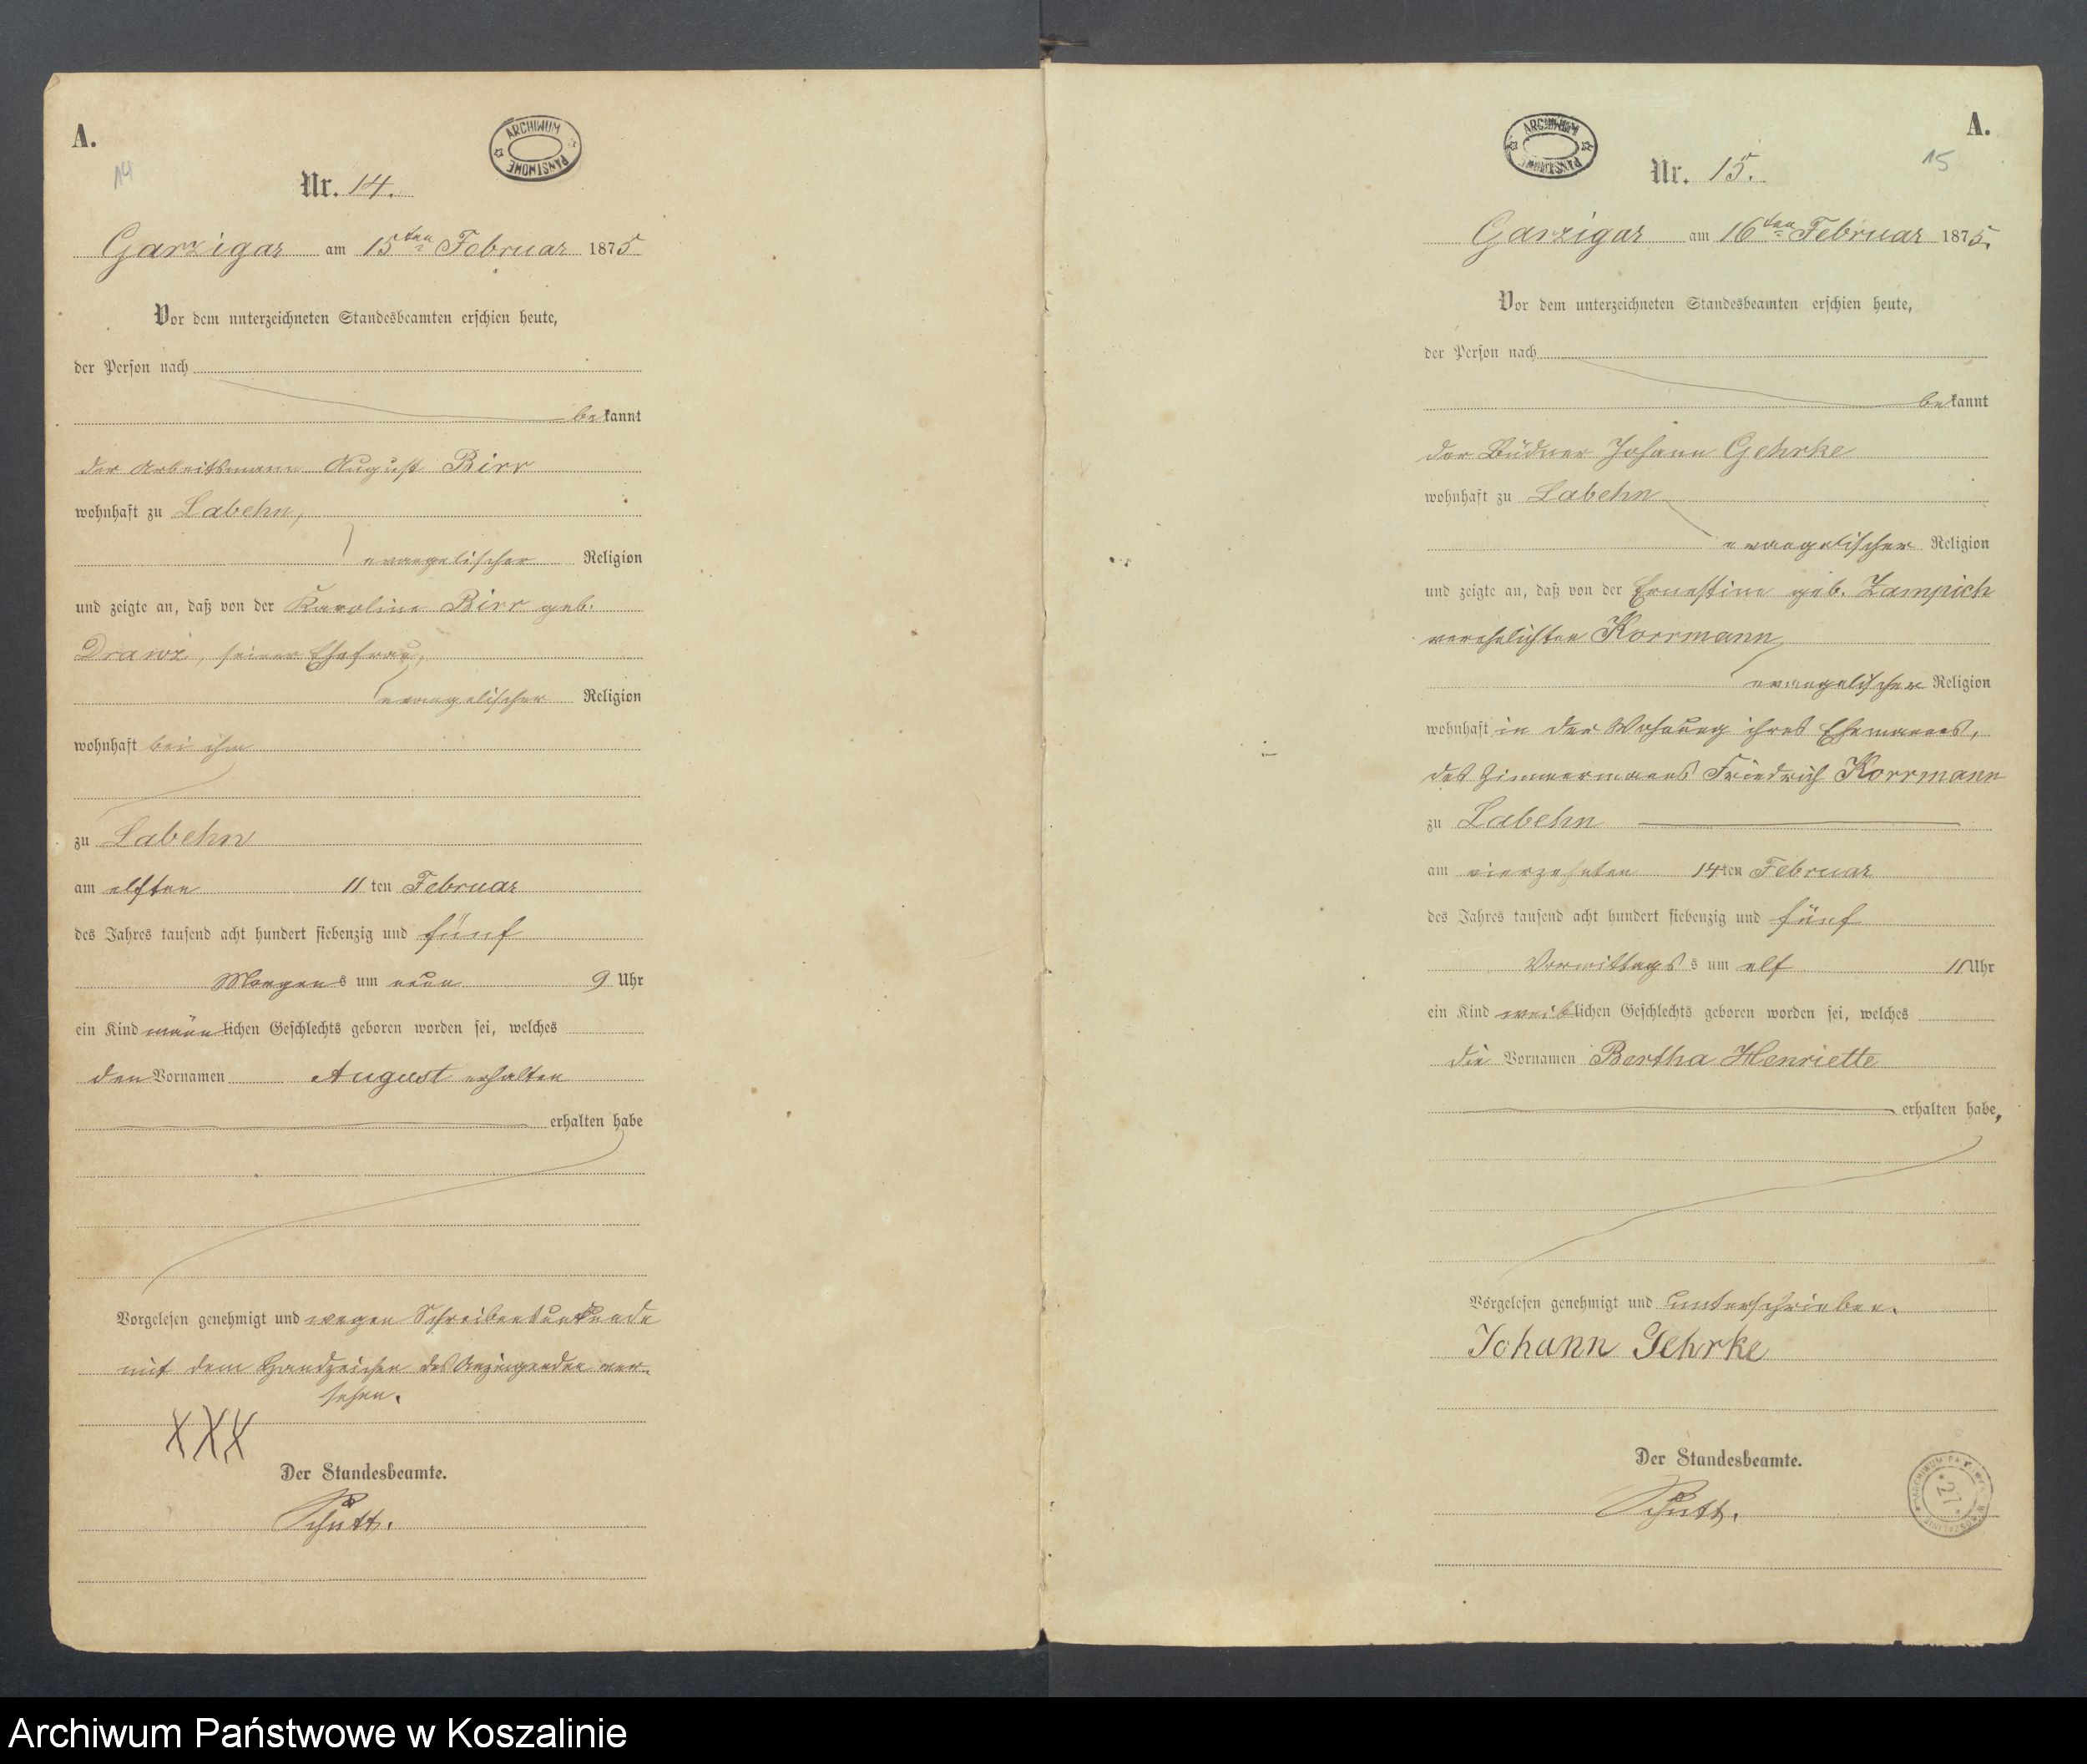 A.
14
ARCHIWUM PAŃSTWOWE
Nr. 14.
Garzigar am 15ten Februar 1875
Vor dem unterzeichneten Standesbeamten erschien heute,
der Person nach
bekannt
der Arbeitsmann August Birr
wohnhaft zu Labehn,
evangelischer Religion
und zeigte an, daß von der Karoline Birr geb.
Drawz, seiner Ehefrau,
evangelischer Religion
wohnhaft bei ihm
zu Labehn
am elften 11 ten Februar
des Jahres tausend acht hundert siebenzig und fünf
Morgens um neun 9 Uhr
ein Kind männlichen Geschlechts geboren worden sei, welches
den Vornamen August erhalten
erhalten habe
Vorgelesen genehmigt und wegen Schreibensunkunde
mit dem Handzeichen des Anzeigenden ver-
sehen.
XXX
Der Standesbeamte.
Schutt.
A.
15
ARCHIWUM PAŃSTWOWE
Nr. 15.
Garzigar am 16ten Februar 1875.
Vor dem unterzeichneten Standesbeamten erschien heute,
der Person nach
bekannt
der Büdner Johann Gehrke
wohnhaft zu Labehn
evangelischer Religion
und zeigte an, daß von der Ernestine geb. Zampich
verehelichten Korrmann
evangelischer Religion
wohnhaft in der Wohnung ihres Ehemannes,
des Zimmermanns Friedrich Korrmann
zu Labehn
am vierzehnten 14ten Februar
des Jahres tausend acht hundert siebenzig und fünf
Vormittags s um elf 11 Uhr
ein Kind weiblichen Geschlechts geboren worden sei, welches
die Vornamen Bertha Henriette
erhalten habe,
Vorgelesen genehmigt und unterschrieben.
Johann Gehrke
Der Standesbeamte.
Schutt.
27
Archiwum Państwowe w Koszalinie